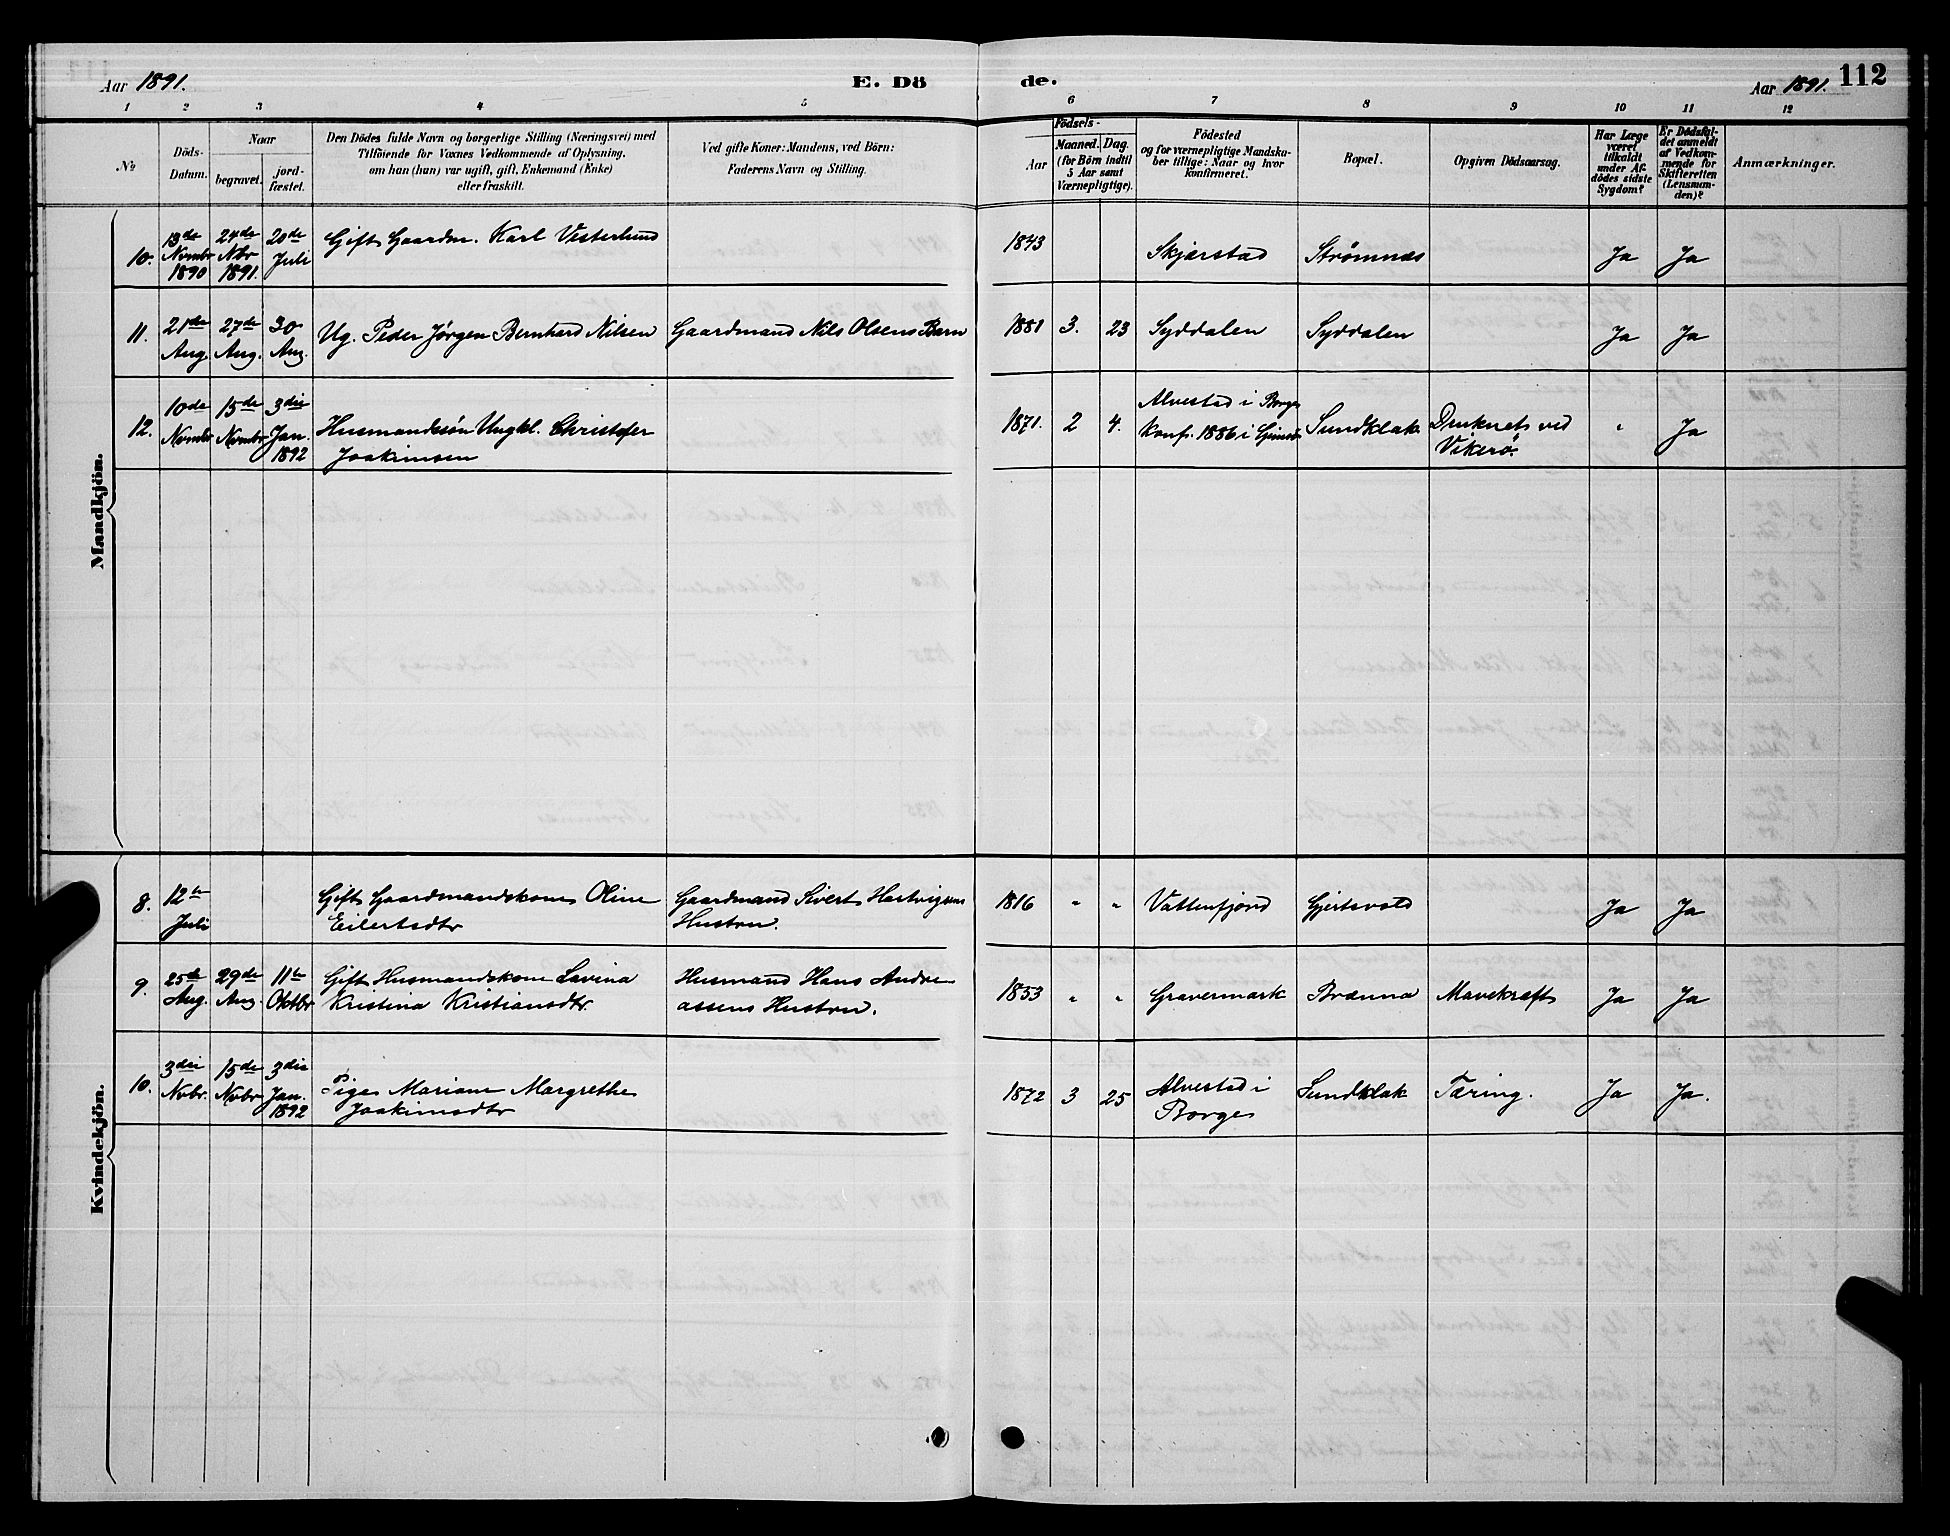 Aar 1891.
E. Dö
de.
Aar 1891.
112
1 2 3 4 5 6 7 8 9 10 11 12
No
Döds-
Datum.
Naar
begravet.
jord-
fæstet.
Den Dödes fulde Navn og borgerlige Stilling (Næringsvei) med
Tilföiende for Voxnes Vedkommende af Oplysning,
om han (hun) var ugift, gift, Enkemand (Enke)
eller fraskilt.
Ved gifte Koner: Mandens, ved Börn:
Faderens Navn og Stilling.
Födsels-
Aar
Maaned.
Dag.
(for Börn indtil
5 Aar samt
Værnepligtige).
Födested
og for værnepligtige Mandska-
ber tillige: Naar og hvor
konfirmeret.
Bopæl.
Opgiven Dödsaarsag.
Har Læge
været
tilkaldt
under Af-
dödes sidste
Sygdom?
Er Dödsfal-
det anmeldt
af Vedkom-
mende for
Skifteretten
(Lensman-
den)?
Anmærkninger.
Mandkjön.
10.
13de
Nvmbr
1890
24de
Nbr
1891.
20de
Juli
Gift Gaardm. Karl Vesterlund
1843
Skjerstad
Strømnes
Ja
Ja
11.
21de
Aug.
27de
Aug.
30
Aug.
Ug. Peder Jørgen Bernhard Nilsen
Gaardmand Nils Olsens Barn
1881
3.
23
Syddalen
Syddalen
Ja
Ja
12.
10de
Nvmbr
15de
Nvmbr
3die
Jan.
1892
Husmandssøn Ungkl. Christofer
Joakimsen
1871.
2
4.
Alvestad i Borge
Konf. 1886 i Gimsø
Sundklak
Druknet ved
Vikerø.
"
Ja
Kvindekjön.
8.
12te
Juli
Gift Gaardmandskone Oline
Eilertsdtr
Gaardmand Sivert Hartvigsens
Hustru.
1816
"
"
Vattenfjord
Gjertsvold
Ja
Ja
9.
25de
Aug.
29de
Aug.
11te
Oktbr
Gift Husmandskone Lavina
Kristina Kristiansdtr.
Husmand Hans Andre
assens Hustru.
1853
"
"
Gravermark
Brænna
Mavekræft
Ja
Ja
10.
3die
Nvbr.
15de
Nvbr
3die
Jan.
1892
Pige Mariane Margrethe
Joakimsdtr
1872
3
25
Alvestad i
Borge
Sundklak
Tæring.
Ja
Ja.